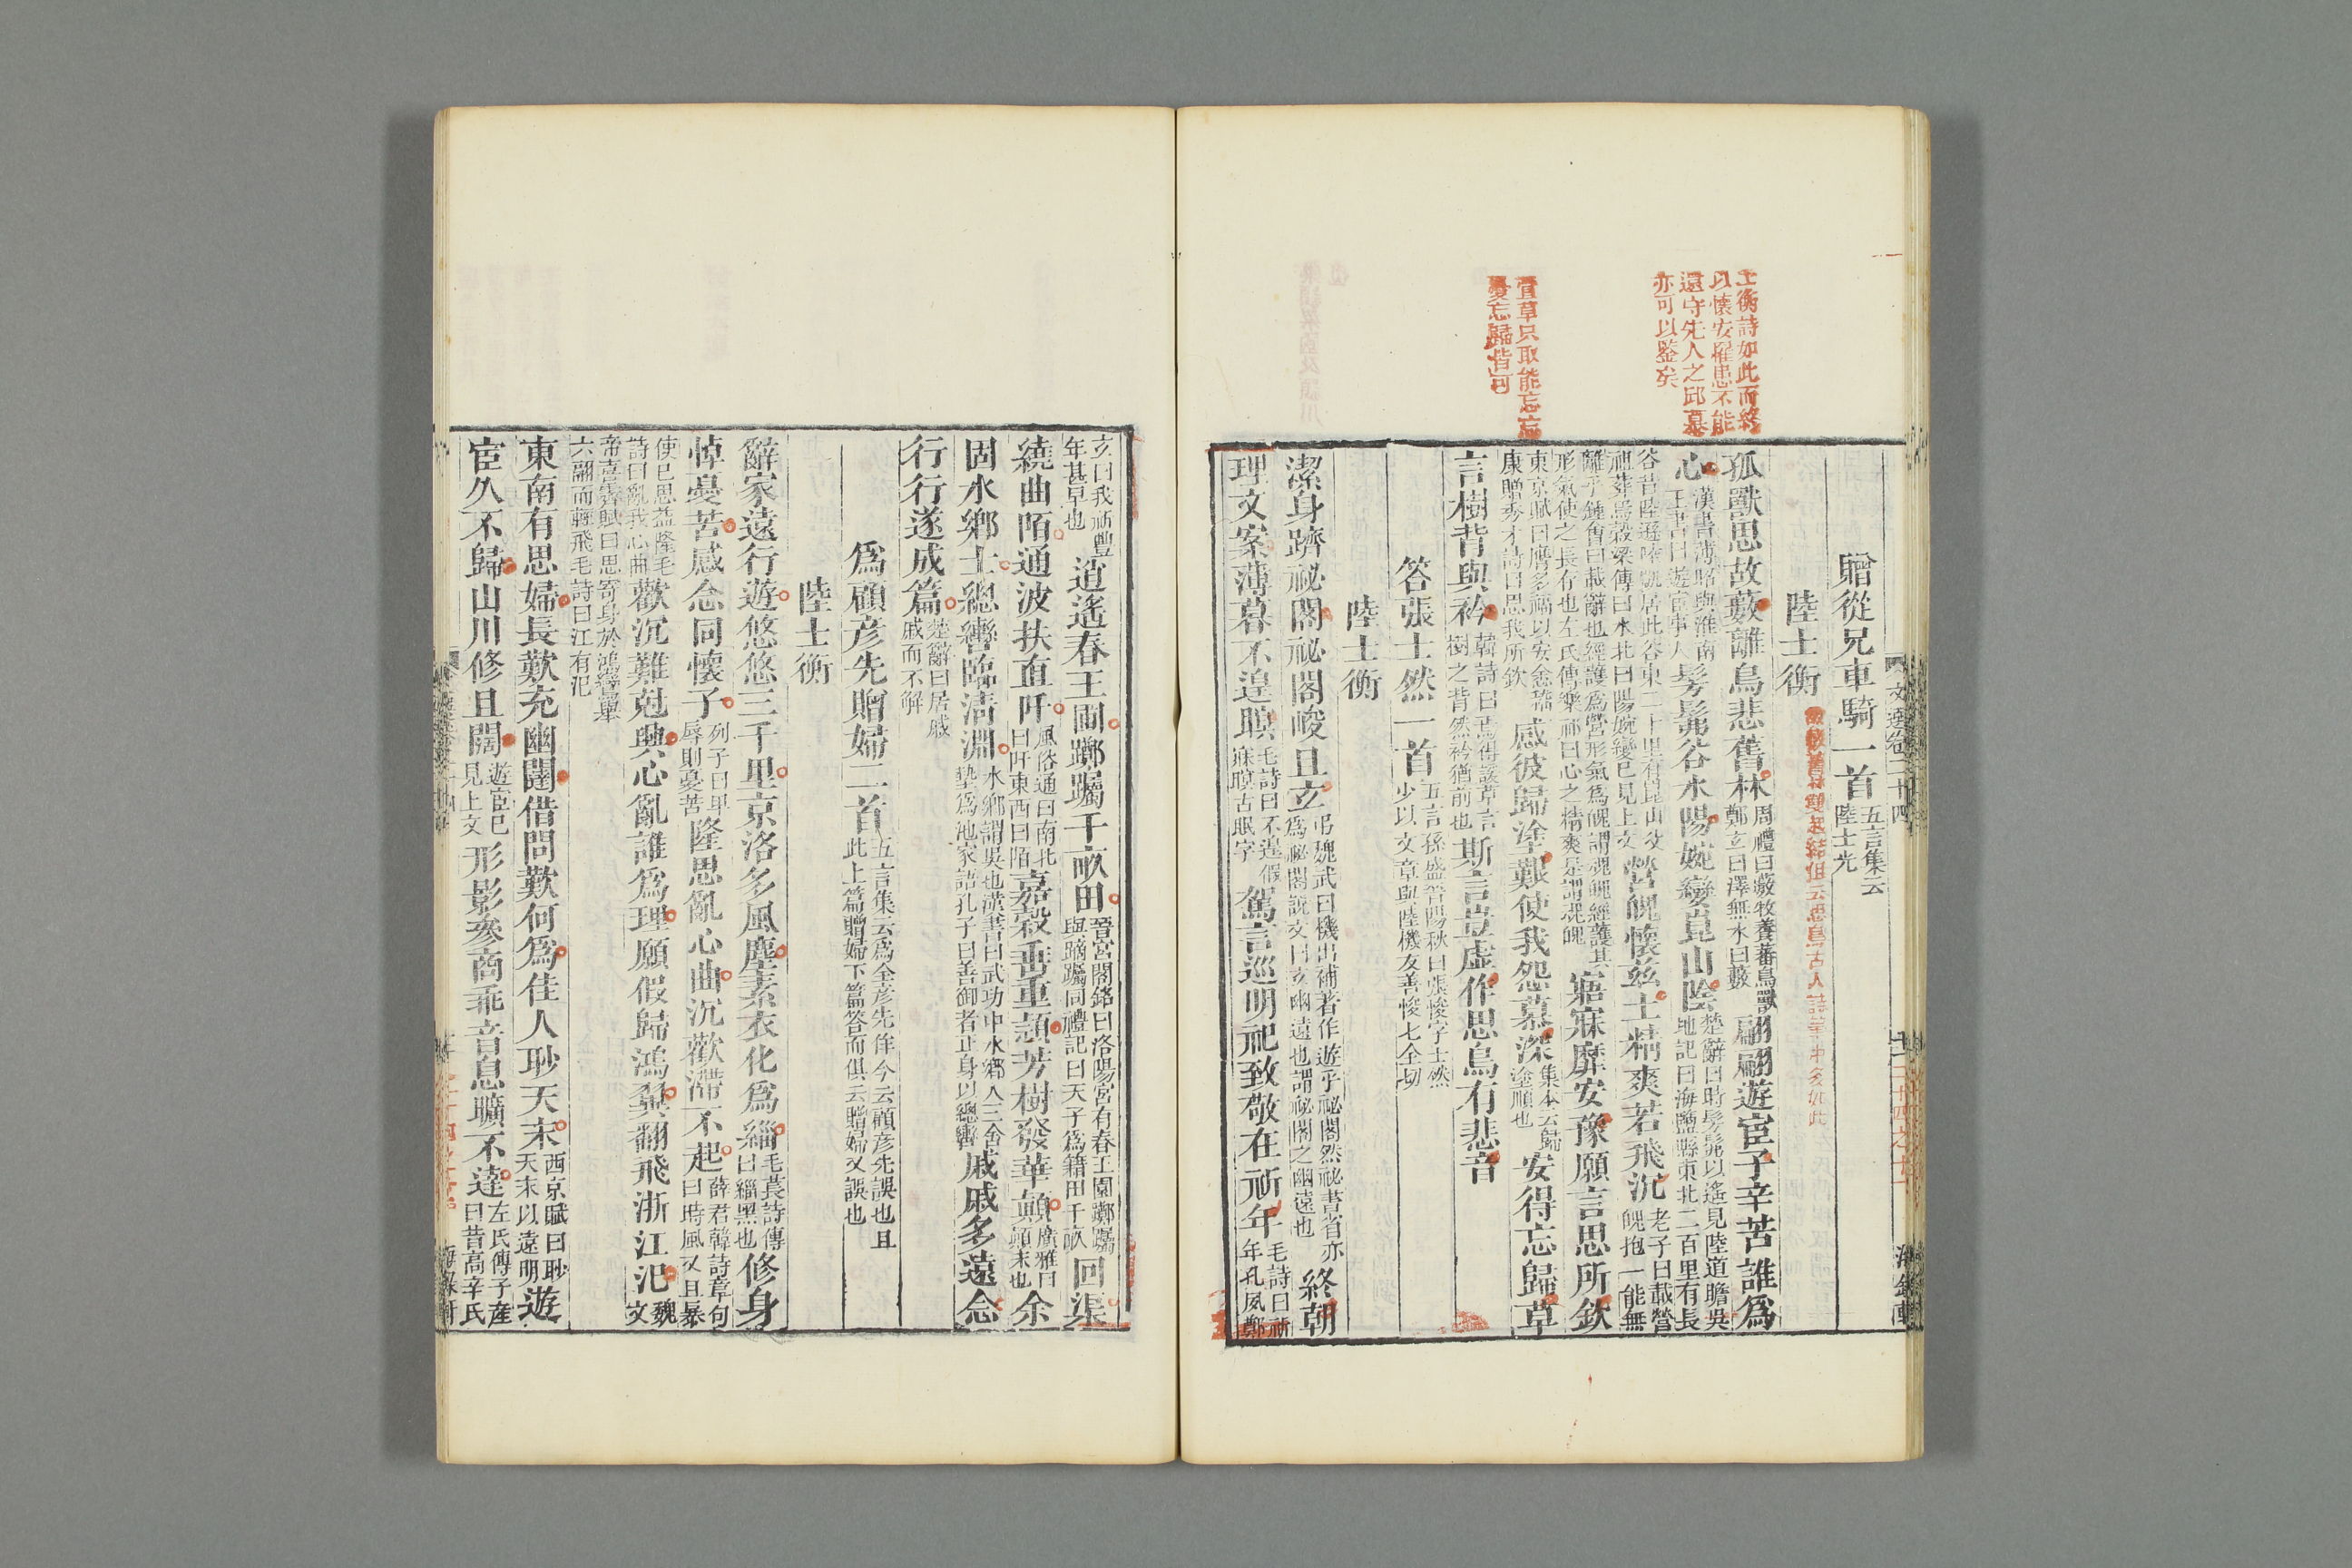 士衡詩如此而終
以懷安罹患不能
還守先人之邱墓
亦可以鑒矣
萱草只取能忘憂
忘歸皆可
贈從兄車騎一首 五言集云
陸士光
陸士衡
孤獸思故藪離鳥悲舊林 周禮曰藪牧養蕃鳥獸
鄭玄曰澤無水曰藪 翩翩遊宦子辛苦誰爲
心 漢書薄昭與淮南
王書曰遊宦事人 髣髴谷水陽婉孌崑山陰 楚辭曰時髣髴以遙見陸道瞻吳
地記曰海鹽縣東北二百里有長
谷昔陸遜陸凱居此谷東二十里有崑山父
祖葬焉穀梁傳曰水北曰陽婉孌已見上文 營魄懷兹土精爽若飛沉 老子曰載營
魄抱一能無
離乎鍾會曰載辭也經護爲營形氣爲魄謂魂魄經護其
形氣使之長存也左氏傳樂祁曰心之精爽是謂魂魄 寤寐靡安豫願言思所欽
東京賦曰膺多福以安悆嵇
康贈秀才詩曰思我所欽 感彼歸塗艱使我怨慕深 集本云歸
塗順也 安得忘歸草
言樹背與衿 韓詩曰焉得諼草言
樹之背然衿猶前也 斯言豈虛作思鳥有悲音
答張士然一首 五言孫盛晉陽秋曰張悛字士然
少以文章與陸機友善悛七全切
陸士衡
潔身躋祕閣祕閣峻且玄 弔魏武曰機出補著作遊乎祕閣然祕書省亦
爲祕閣說文曰玄幽遠也謂祕閣之幽遠也 終朝
理文案薄暮不遑瞑 毛詩曰不遑假
寐瞑古眠字 駕言巡明祀致敬在祈年 毛詩曰祈
年孔夙鄭
玄曰我祈豐
年甚早也 逍遙春王圃躑躅千畝田 晉宮閣銘曰洛陽宮有春王園躑躅
與蹢躅同禮記曰天子爲籍田千畝 回渠
繞曲陌通波扶直阡 風俗通曰南北
曰阡東西曰陌 嘉穀垂重穎芳樹發華顛 廣雅曰
顛末也 余
固水鄉士總轡臨清淵 水鄉謂吳也漢書曰武功中水鄉人三舍
墊爲池家語孔子曰善御者正身以總轡 戚戚多遠念
行行遂成篇 楚辭曰居戚
戚而不解
爲顧彥先贈婦二首 五言集云爲全彥先作今云顧彥先誤也且
此上篇贈婦下篇答而俱云贈婦又誤也
陸士衡
辭家遠行遊悠悠三千里京洛多風塵素衣化爲緇 毛萇詩傳
曰緇黑也 修身
悼憂苦感念同懷子 列子曰卑
辱則憂苦 隆思亂心曲沉歡滯不起 薛君韓詩章句
曰時風又且暴
使已思益隆毛
詩曰亂我心曲 歡沉難剋興心亂誰爲理願假歸鴻翼翻飛浙江汜 魏
文
帝喜霽賦曰思寄身於鴻鸞舉
六翮而輕飛毛詩曰江有汜
東南有思婦長歎充幽闥借問歎何爲佳人眇天末 西京賦曰眇
天末以遠明 遊
宦久不歸山川修且闊 遊宦已
見上文 形影參商乖音息曠不達 左氏傳子產
曰昔高辛氏
文選卷二十四
海錄軒